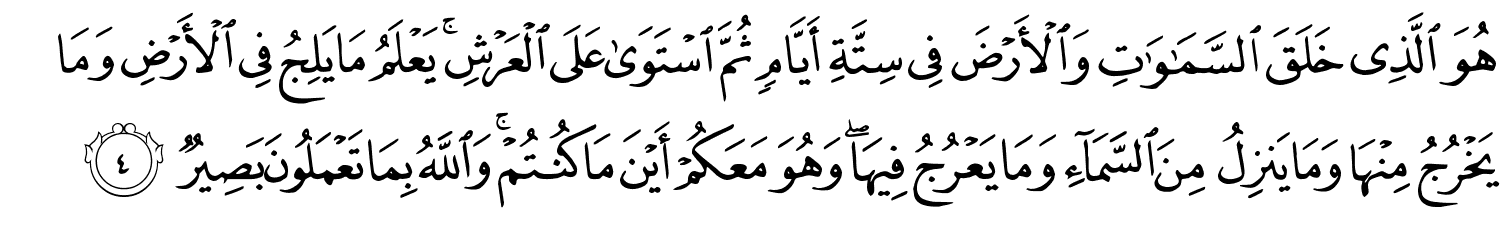 هُوَ ٱلَّذِى خَلَقَ ٱلسَّمَـٰوَٰتِ وَٱلْأَرْضَ فِى سِتَّةِ أَيَّامٍۢ ثُمَّ ٱسْتَوَىٰ عَلَى ٱلْعَرْشِ ۚ يَعْلَمُ مَا يَلِجُ فِى ٱلْأَرْضِ وَمَا
يَخْرُجُ مِنْهَا وَمَا يَنزِلُ مِنَ ٱلسَّمَآءِ وَمَا يَعْرُجُ فِيهَا ۖ وَهُوَ مَعَكُمْ أَيْنَ مَا كُنتُمْ ۚ وَٱللَّهُ بِمَا تَعْمَلُونَ بَصِيرٌۭ ٤